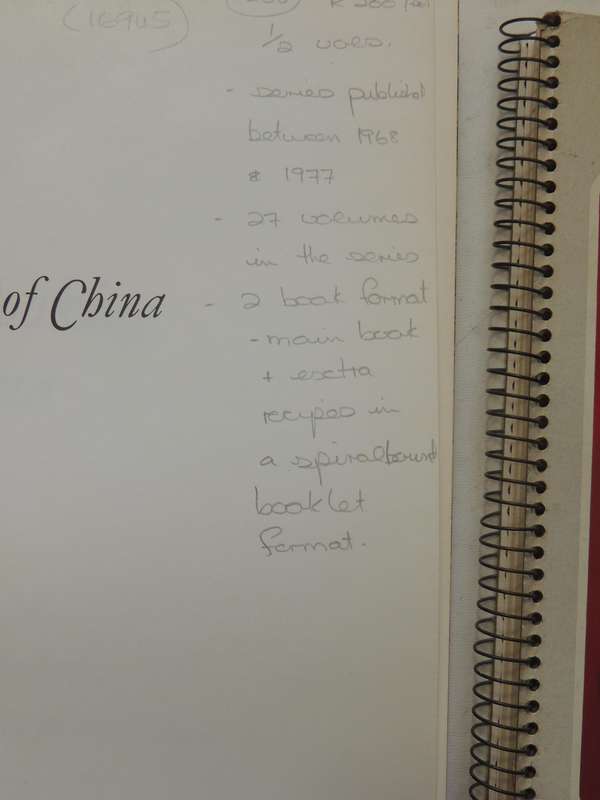 (16945)
1/2 vols.
- series publishd
between 1968
& 1977
- 27 volumes
in the series
of China
- 2 book format
- main book
+ esctra
recipes in
a spiralbound
booklet
format.